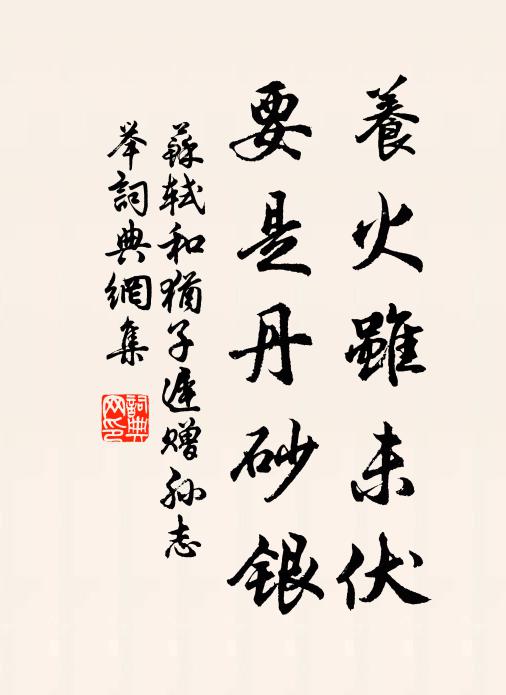 養火雖未伏
要是丹砂銀
蘇軾和猶子遲贈孫志
举詞典網集
詞典网印